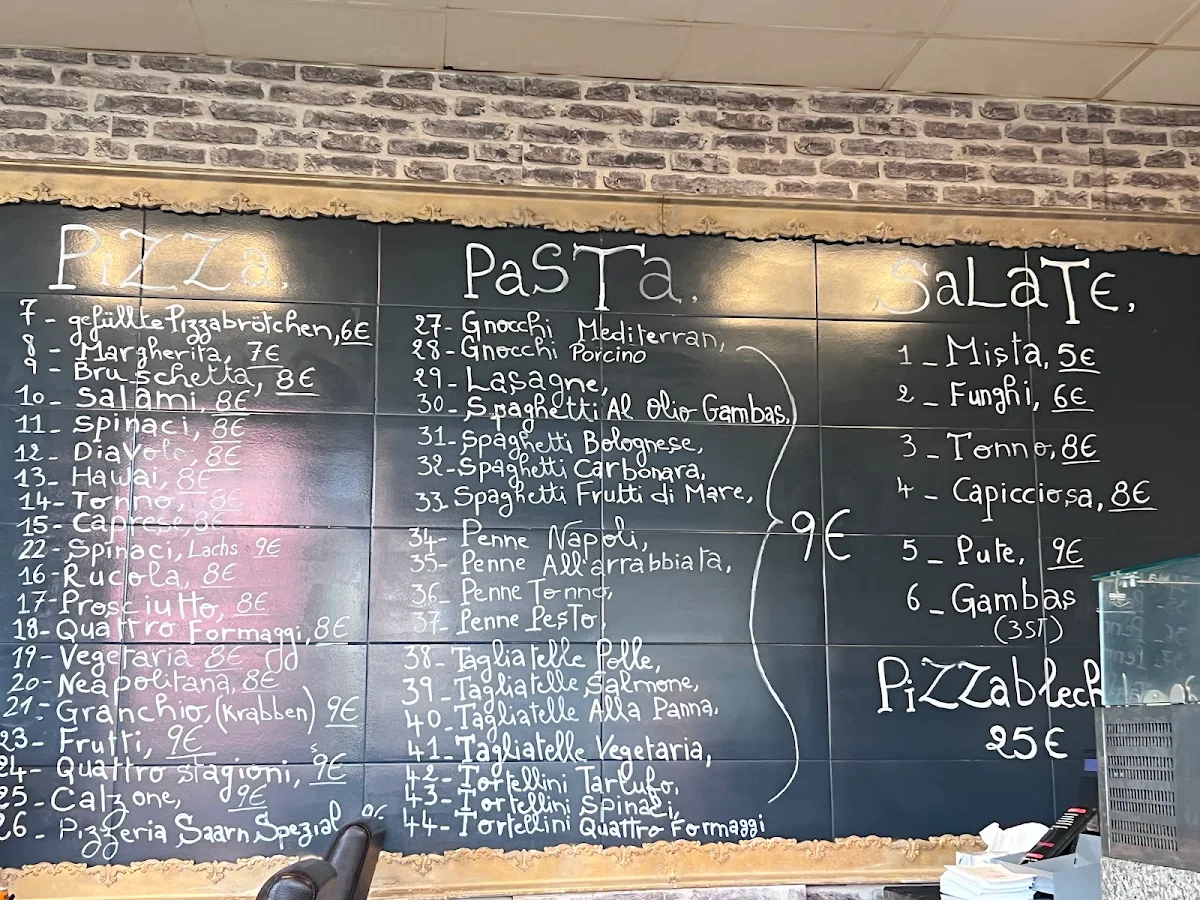 PiZZa.
7 - gefüllte Pizzabrötchen, 6€
8 - Margherita, 7€
9 - Bruschetta, 8€
10 - Salami, 8€
11 - Spinaci, 8€
12 - Diavolo, 8€
13 - Hawai, 8€
14 - Tonno, 8€
15 - Caprese, 8€
22 - Spinaci, Lachs 9€
16 - Rucola, 8€
17 - Prosciutto, 8€
18 - Quattro Formaggi, 8€
19 - Vegetaria 8€
20 - Neapolitana, 8€
21 - Granchio, (Krabben) 9€
23 - Frutti, 9€
24 - Quattro stagioni, 9€
25 - Calzone, 9€
26 - Pizzeria Saarn Spezial 9€
PaSTa.
27 - Gnocchi Mediterran,
28 - Gnocchi Porcino
29 - Lasagne,
30 - Spaghetti Al Olio Gambas,
31 - Spaghetti Bolognese,
32 - Spaghetti Carbonara,
33 Spaghetti Frutti di Mare,
34 - Penne Napoli,
35 - Penne All'arrabbiata,
36 - Penne Tonno,
37 - Penne Pesto,
38 - Tagliatelle Polle,
39 - Tagliatelle Salmone,
40 - Tagliatelle Alla Panna,
41 - Tagliatelle Vegetaria,
42 - Tortellini Tartufo,
43 - Tortellini Spinaci,
44 - Tortellini Quattro Formaggi
9€
SaLaTe,
1 - Mista, 5€
2 - Funghi, 6€
3 - Tonno, 8€
4 - Capicciosa, 8€
5 - Pute, 9€
6 - Gambas
(3ST)
PiZZablech
25€